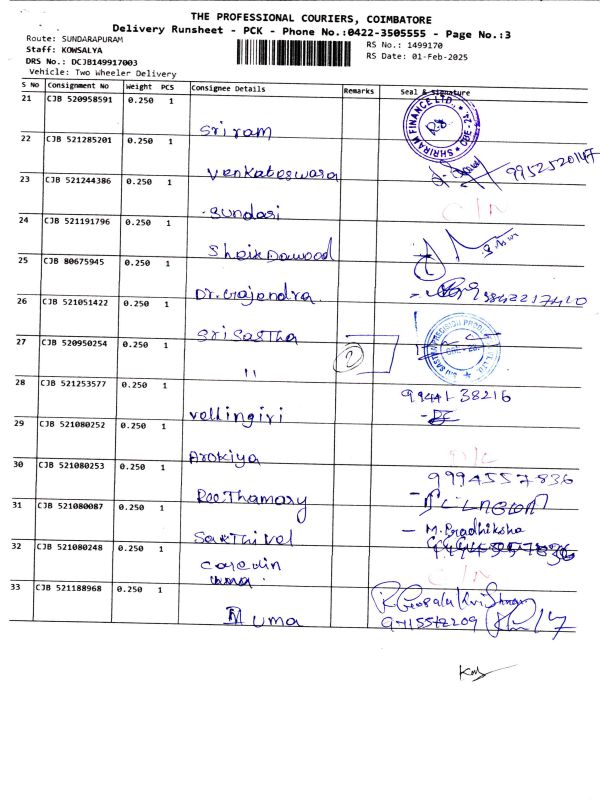 THE PROFESSIONAL COURIERS, COIMBATORE
Delivery Runsheet - PCK - Phone No.:0422-3505555 - Page No.:3
Route: SUNDARAPURAM
RS No.: 1499170
Staff: KOWSALYA
RS Date: 01-Feb-2025
DRS No.: DCJB149917003
Vehicle: Two Wheeler Delivery
S No Consignment No Weight PCS Consignee Details Remarks Seal & Signature
21 CJB 520958591 0.250 1 Sriram
SHRIRAM FINANCE LTD.,
22 CJB 521285201 0.250 1 Venkateswara 9952520147
23 CJB 521244386 0.250 1 Sundari C/N
24 CJB 521191796 0.250 1 Sheik Dawood
25 CJB 80675945 0.250 1 Dr. Gajendra 93842217410
26 CJB 521051422 0.250 1 Sri Sastha
27 CJB 520950254 0.250 1 " 2
28 CJB 521253577 0.250 1 Vellingiri 99441-38216
29 CJB 521080252 0.250 1 Arokiya
30 CJB 521080253 0.250 1 9994557836
31 CJB 521080087 0.250 1 Sakthivel M. Pradhiksha
32 CJB 521080248 0.250 1 C/N
33 CJB 521188968 0.250 1 uma R. Gopala Krishnan